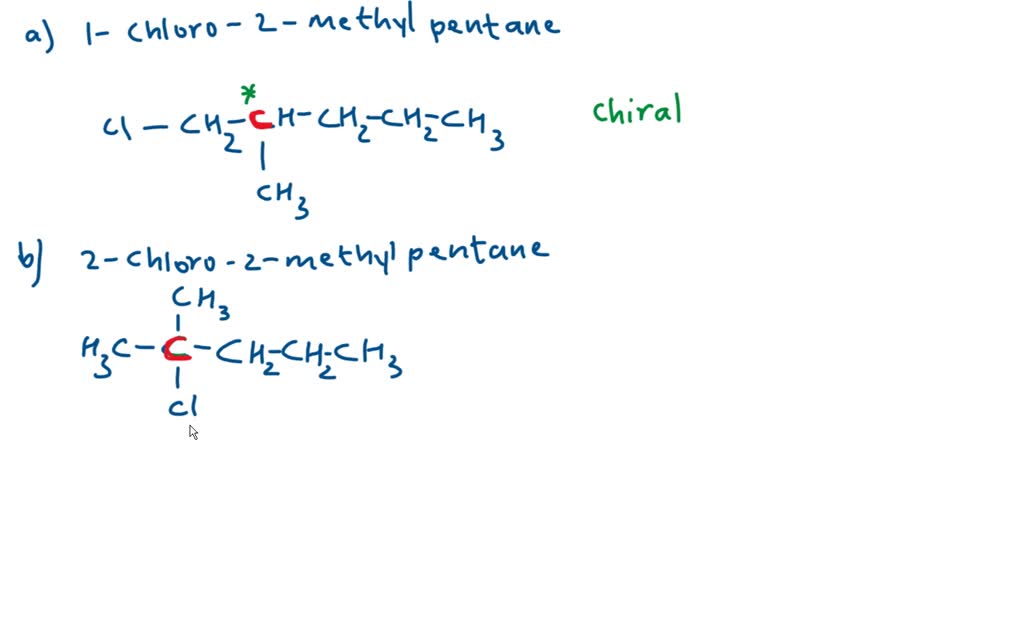 a) 1- chloro-2-methyl pentane
*
Cl — CH2-CH-CH2-CH2-CH3 chiral
CH3
b) 2-chloro-2-methyl pentane
CH3
H3C-C-CH2-CH2-CH3
Cl